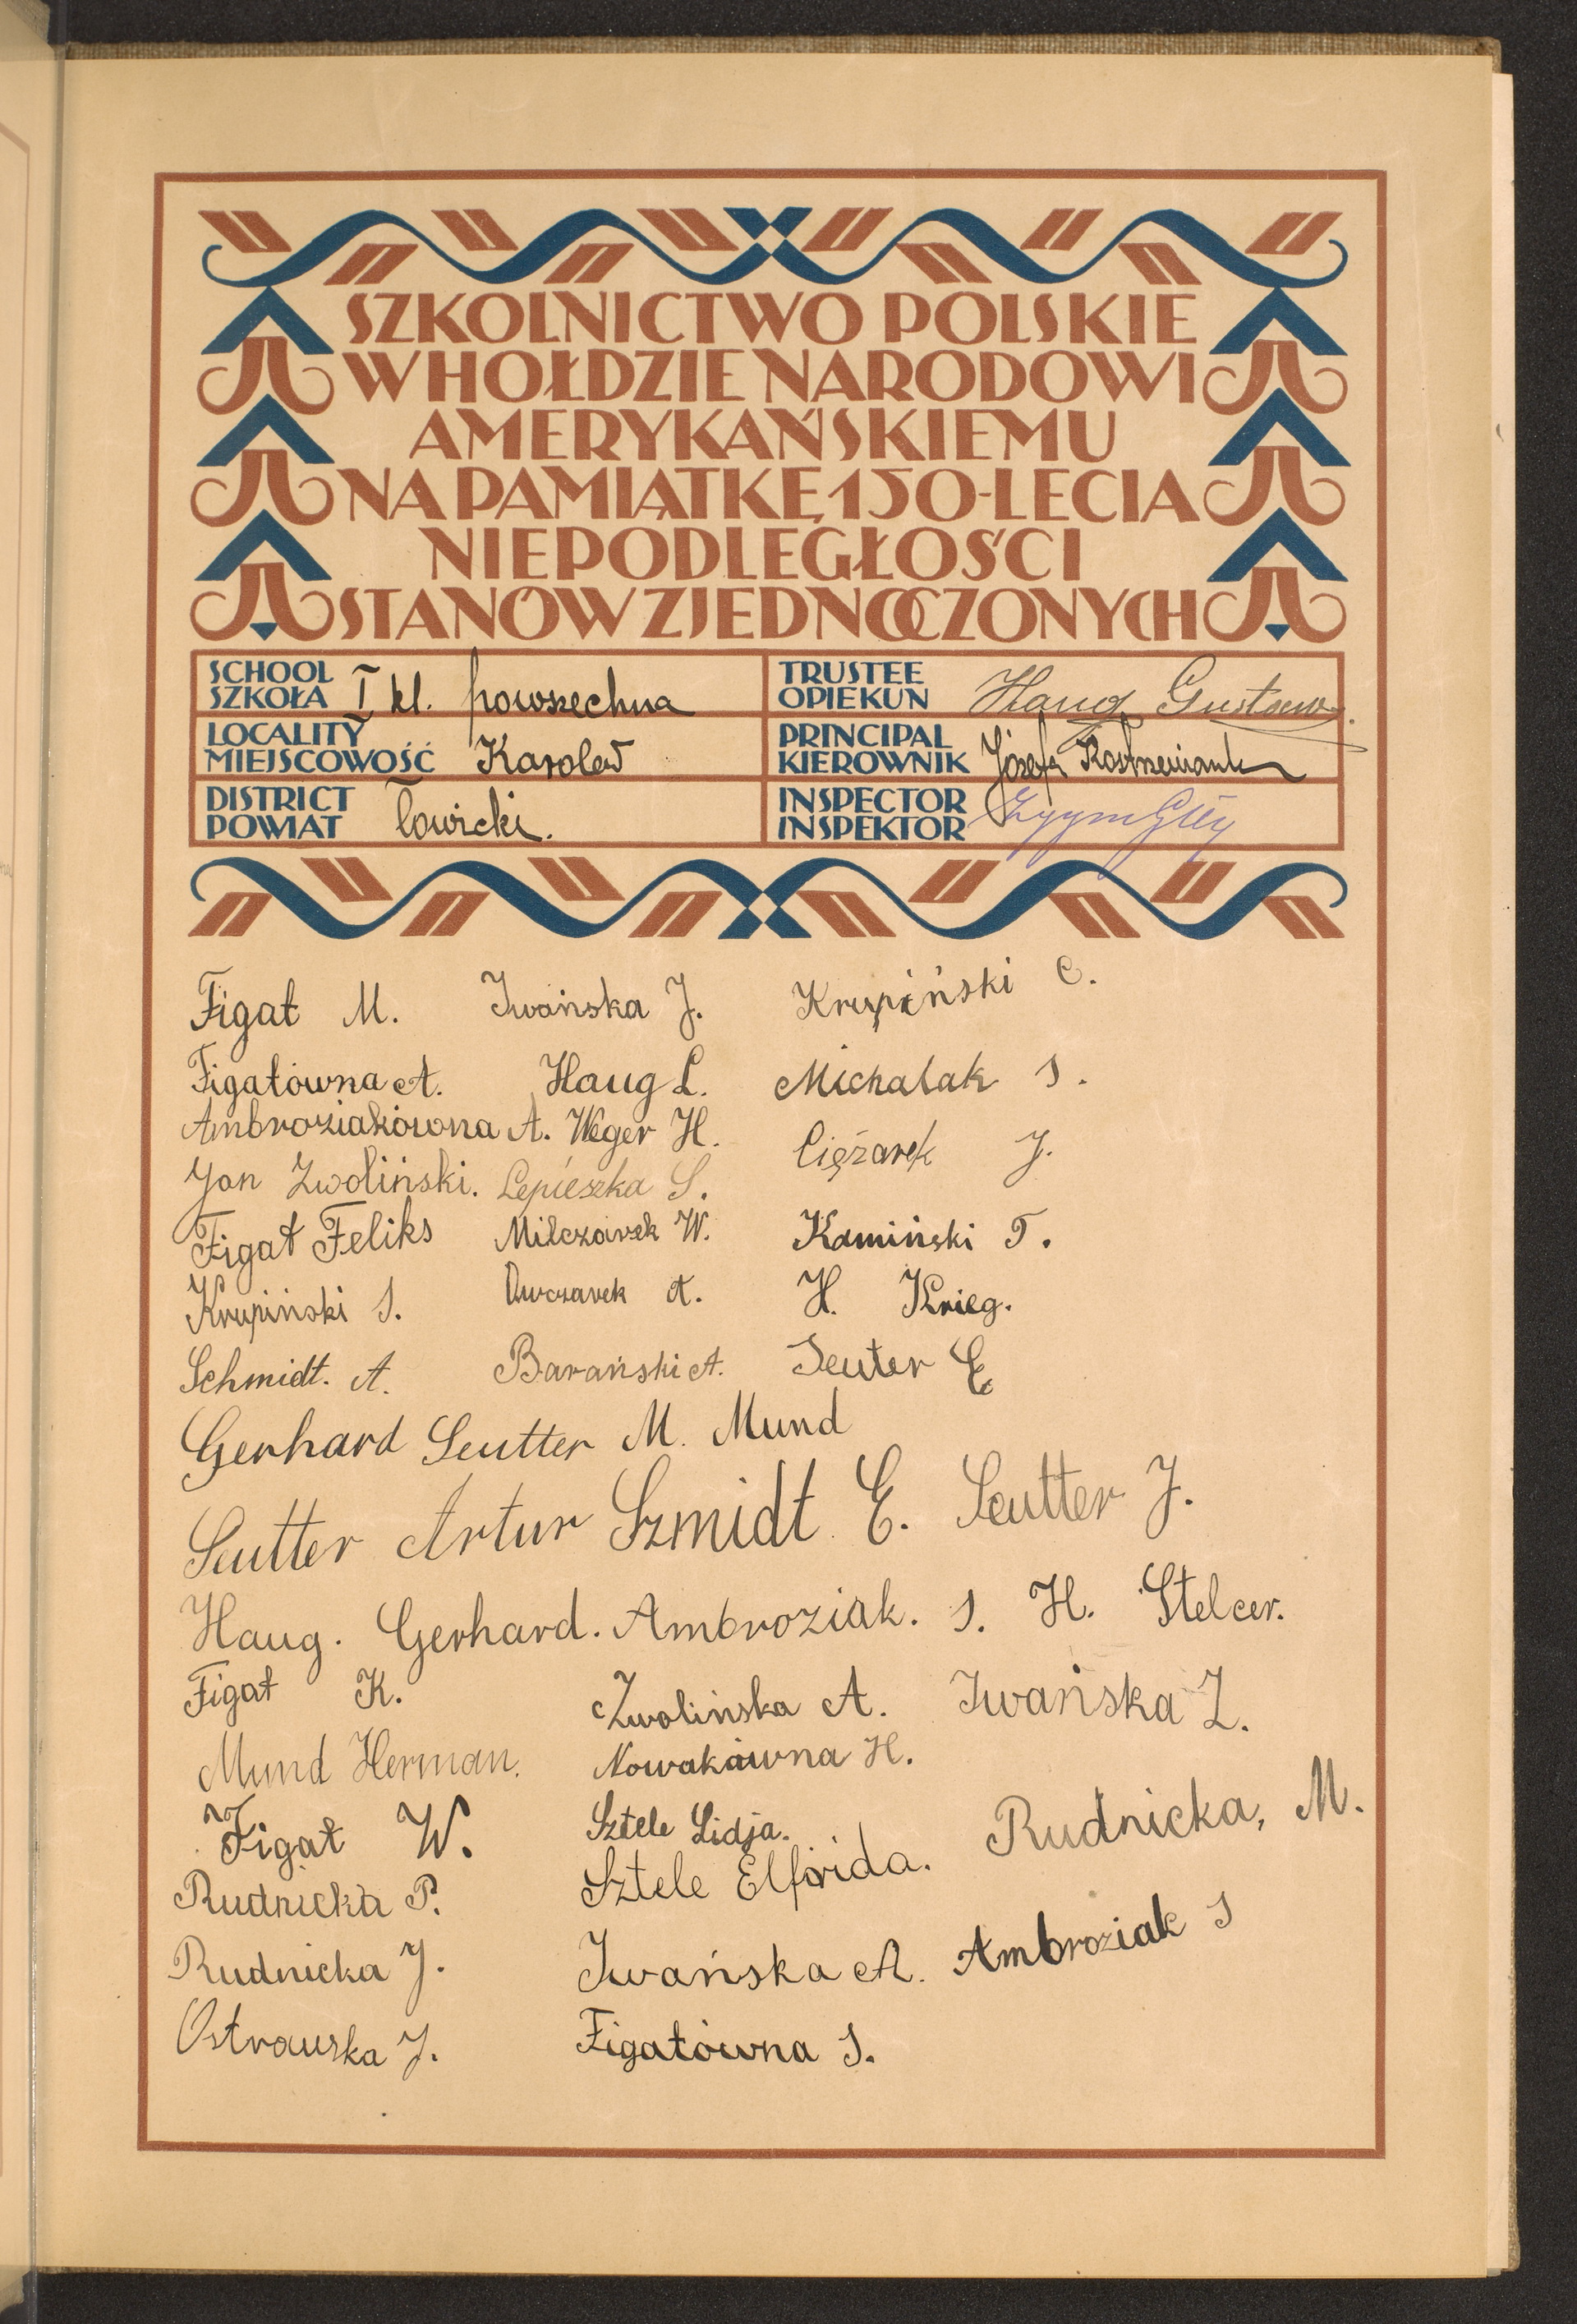 SZKOLNICTWO POLSKIE
W HOŁDZIE NARODOWI
AMERYKAŃSKIEMU
NA PAMIĄTKĘ 150-LECIA
NIEPODLEGŁOŚCI
STANÓW ZJEDNOCZONYCH
SCHOOL
SZKOŁA I kl. powszechna
TRUSTEE
OPIEKUN Haug Gustaw.
LOCALITY
MIEJSCOWOŚĆ Karolew
PRINCIPAL
KIEROWNIK Józefa
DISTRICT
POWIAT Łowicki.
INSPECTOR
INSPEKTOR
Figat M. Iwańska J. Krupiński C.
Figatówna A. Haug L. Michalak S.
Ambroziakówna A. Weger H. Ciężarek J.
Jan Zwoliński. Lepieszka S.
Figat Feliks Milczarek W. Kamiński T.
Krupiński S. Owczarek A. H. Krieg.
Schmidt. A. Barański A. Seuter E.
Gerhard Seutter M. Mund
Seutter Artur Szmidt E. Seutter J.
Haug. Gerhard. Ambroziak. S. H. Stelcer.
Figat K. Zwolińska A. Iwańska Z.
Mund Herman. Nowakówna H.
Figat W. Sztele Lidja. Rudnicka, M.
Rudnicka P. Sztele Elfrida.
Rudnicka J. Iwańska A. Ambroziak S
Ostrowska J. Figatówna S.